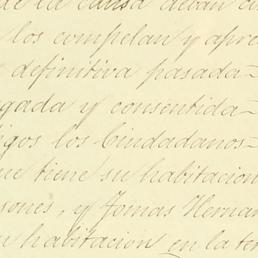 de la causa deban
los compelan y apre
definitiva pasada
gada y consentida
igos los Ciudadanos
ue tiene su habitacion
siones, y Tomas Hernan
habitacion en la ter